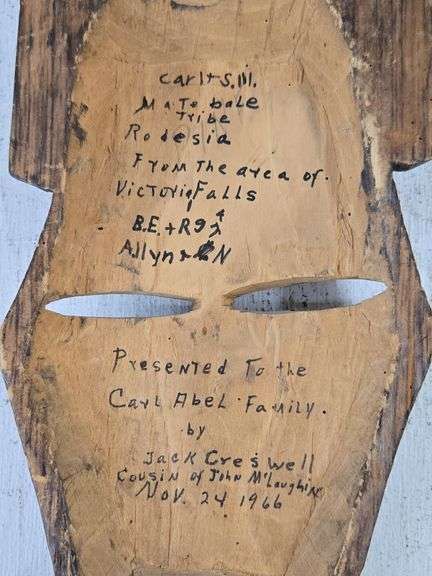 Carl + S. III.
Matobale
Tribe
Rodesia
From The area of.
Victoria Falls
B.E. + R
Allyn + N
Presented To the
Carl Abel Family.
by
Jack Creswell
Cousin of John McLaughin
Nov. 24 1966